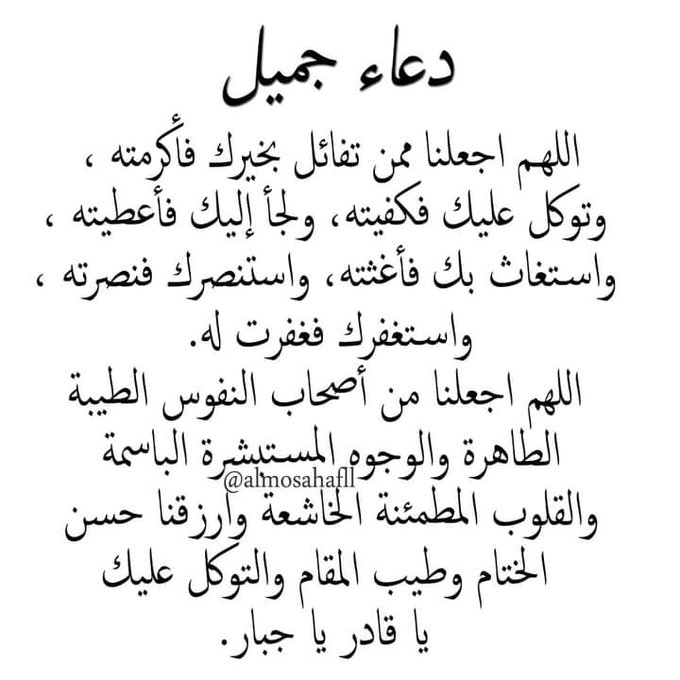 دعاء جميل
اللهم اجعلنا ممن تفائل بخيرك فأكرمته ،
وتوكل عليك فكفيته، ولجأ إليك فأعطيته ،
واستغاث بك فأغثته، واستنصرك فنصرته ،
واستغفرك فغفرت له.
اللهم اجعلنا من أصحاب النفوس الطيبة
الطاهرة والوجوه المستبشرة الباسمة
@almosahafll
والقلوب المطمئنة الخاشعة وارزقنا حسن
الختام وطيب المقام والتوكل عليك
يا قادر يا جبار.